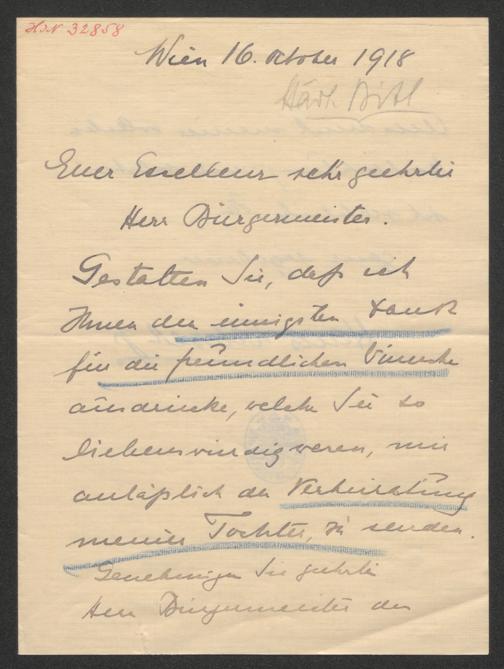 HIN 32858
Wien 16. October 1918
Städt. Bibl.
Euer Excellenz sehr geehrter
Herr Bürgermeister.
Gestatten Sie, daß ich
Ihnen den innigsten Dank
für die freundlichen Wünsche
ausdrücke, welche Sie so
liebenswürdig waren, mir
anläßlich der Verheiratung
meiner Tochter, zu senden.
Genehmigen Sie geehrter
Herr Bürgermeister den